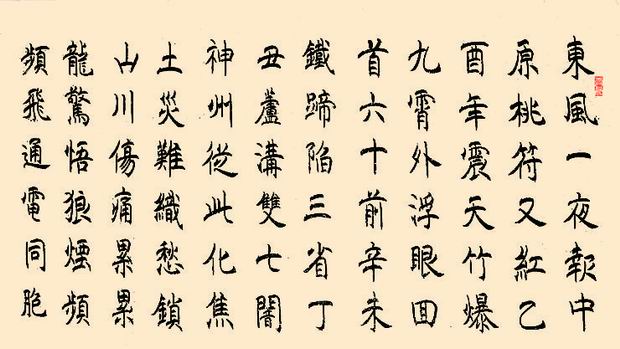 東風一夜報中
原桃符又紅乙
酉年震天竹爆
九霄外浮眼囬
首六十前辛未
鐵蹄陷三省丁
丑蘆溝雙七闇
神州從此化焦
土災難織愁鎖
山川傷痛累累
龍驚悟狼煙頻
頻飛通電同胞